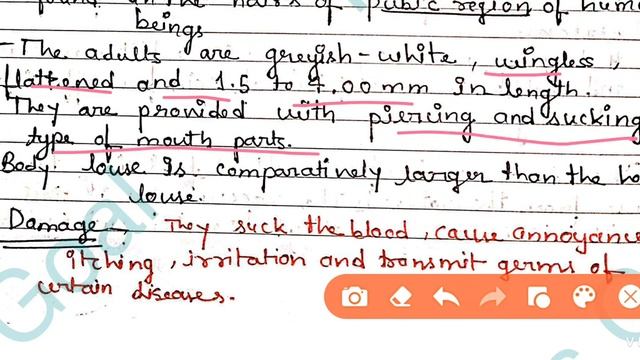 found in the hairs of pubic region of huma
beings
- The adults are greyish-white, wingless,
flattened and 1.5 to 4.00 mm in length.
They are provided with piercing and sucking
type of mouth parts.
Body louse is comparatively larger than the
louse.
Damage - They suck the blood, cause annoyance
itching, irritation and transmit germs of
certain diseases.
Goal